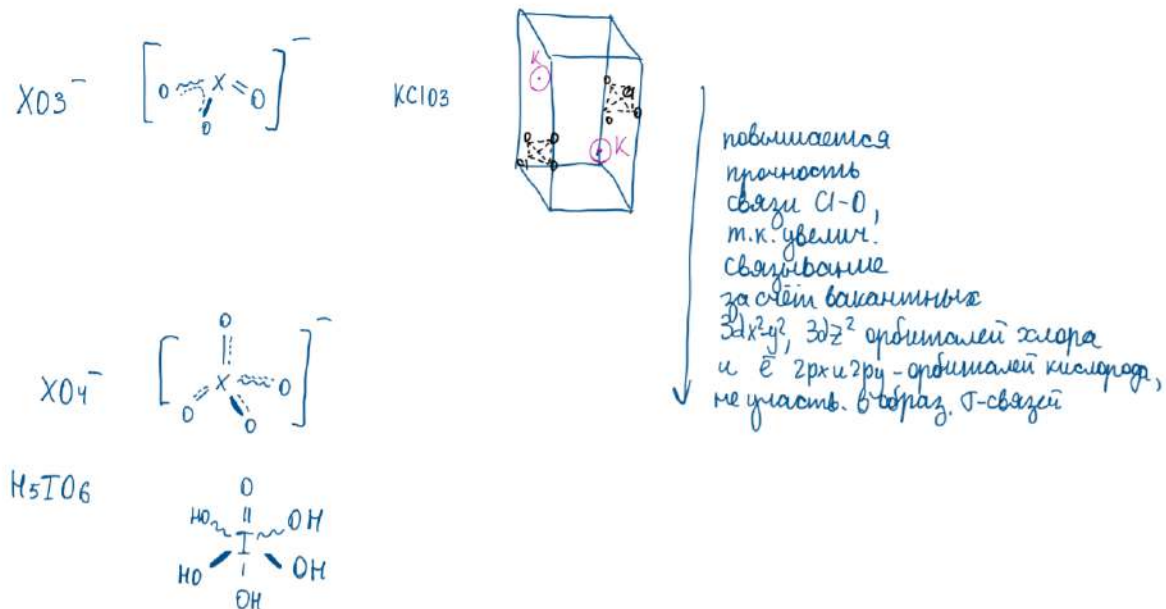 XO3⁻
[O X O O]⁻
KClO3
K
O Cl O O
O O O O
K
повышается
прочность
связи Cl-O,
т.к. увелич.
связывание
за счёт вакантных
3dx²-y², 3dz² орбиталей хлора
и ē 2px и 2py-орбиталей кислорода,
не участв. в образ. σ-связей
XO4⁻
[O X O O O]⁻
H5IO6
O
HO OH
I
HO OH
OH